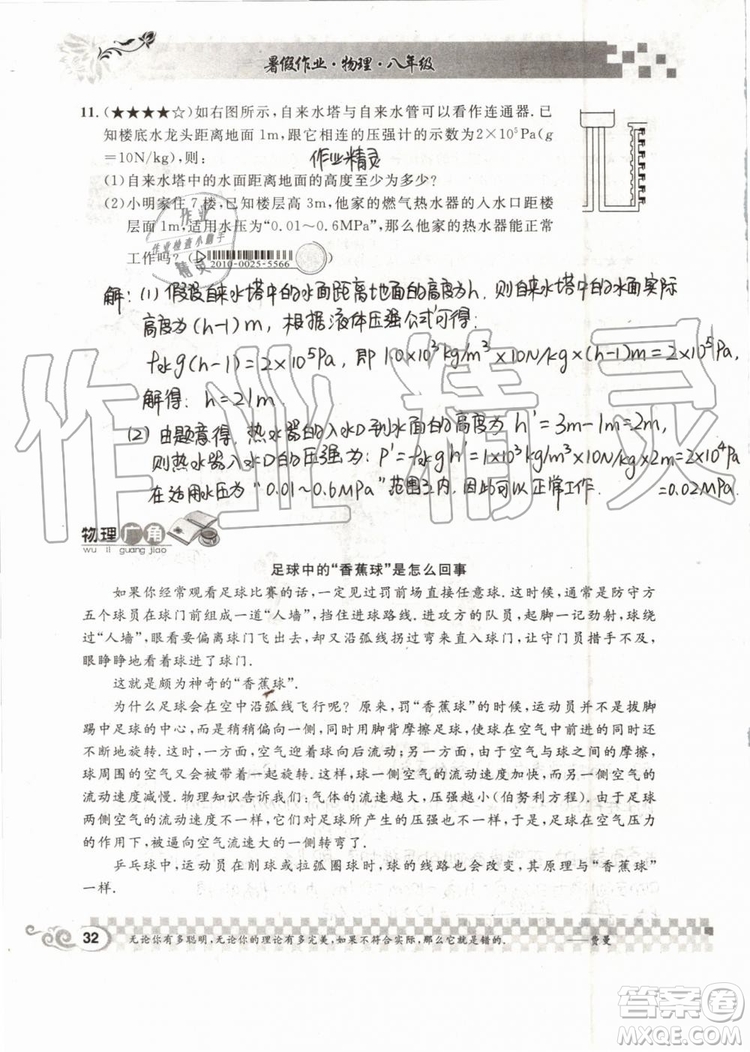 暑假作业·物理·八年级
11.(★★★★☆)如右图所示,自来水塔与自来水管可以看作连通器.已
知楼底水龙头距离地面1m,跟它相连的压强计的示数为2×10⁵Pa(g
=10N/kg),则: 作业精灵
(1)自来水塔中的水面距离地面的高度至少为多少?
(2)小明家住7楼,已知楼层高3m,他家的燃气热水器的入水口距楼
层面1m,适用水压为“0.01～0.6MPa”,那么他家的热水器能正常
工作吗?
2010-0025-5566
作业
作业检查小助手
精灵
解:(1)假设自来水塔中的水面距离地面的高度为h,则自来水塔的水面实际
高度为(h-1)m,根据液体压强公式可得:
ρ水g(h-1)=2×10⁵Pa,即1.0×10³kg/m³×10N/kg×(h-1)m=2×10⁵Pa,
解得:h=21m.
(2)由题意得,热水器的入水口到水面的高度为h'=3m-1m=2m,
则热水器入水口的压强为:P'=ρ水gh'=1×10³kg/m³×10N/kg×2m=2×10⁴Pa
=0.02MPa.
在适用水压为“0.01～0.6MPa”范围之内,因此可以正常工作.
作业精灵
物理广角
wu li guang jiao
足球中的“香蕉球”是怎么回事
如果你经常观看足球比赛的话,一定见过罚前场直接任意球.这时候,通常是防守方
五个球员在球门前组成一道“人墙”,挡住进球路线.进攻方的队员,起脚一记劲射,球绕
过“人墙”,眼看要偏离球门飞出去,却又沿弧线拐过弯来直入球门,让守门员措手不及,
眼睁睁地看着球进了球门.
这就是颇为神奇的“香蕉球”.
为什么足球会在空中沿弧线飞行呢?原来,罚“香蕉球”的时候,运动员并不是拔脚
踢中足球的中心,而是稍稍偏向一侧,同时用脚背摩擦足球,使球在空气中前进的同时还
不断地旋转.这时,一方面,空气迎着球向后流动;另一方面,由于空气与球之间的摩擦,
球周围的空气又会被带着一起旋转.这样,球一侧空气的流动速度加快,而另一侧空气的
流动速度减慢.物理知识告诉我们:气体的流速越大,压强越小(伯努利方程).由于足球
两侧空气的流动速度不一样,它们对足球所产生的压强也不一样,于是,足球在空气压力
的作用下,被迫向空气流速大的一侧转弯了.
乒乓球中,运动员在削球或拉弧圈球时,球的线路也会改变,其原理与“香蕉球”
一样.
32
无论你有多聪明,无论你的理论有多完美,如果不符合实际,那么它就是错的. ——费曼
答案圈
MXQE.COM